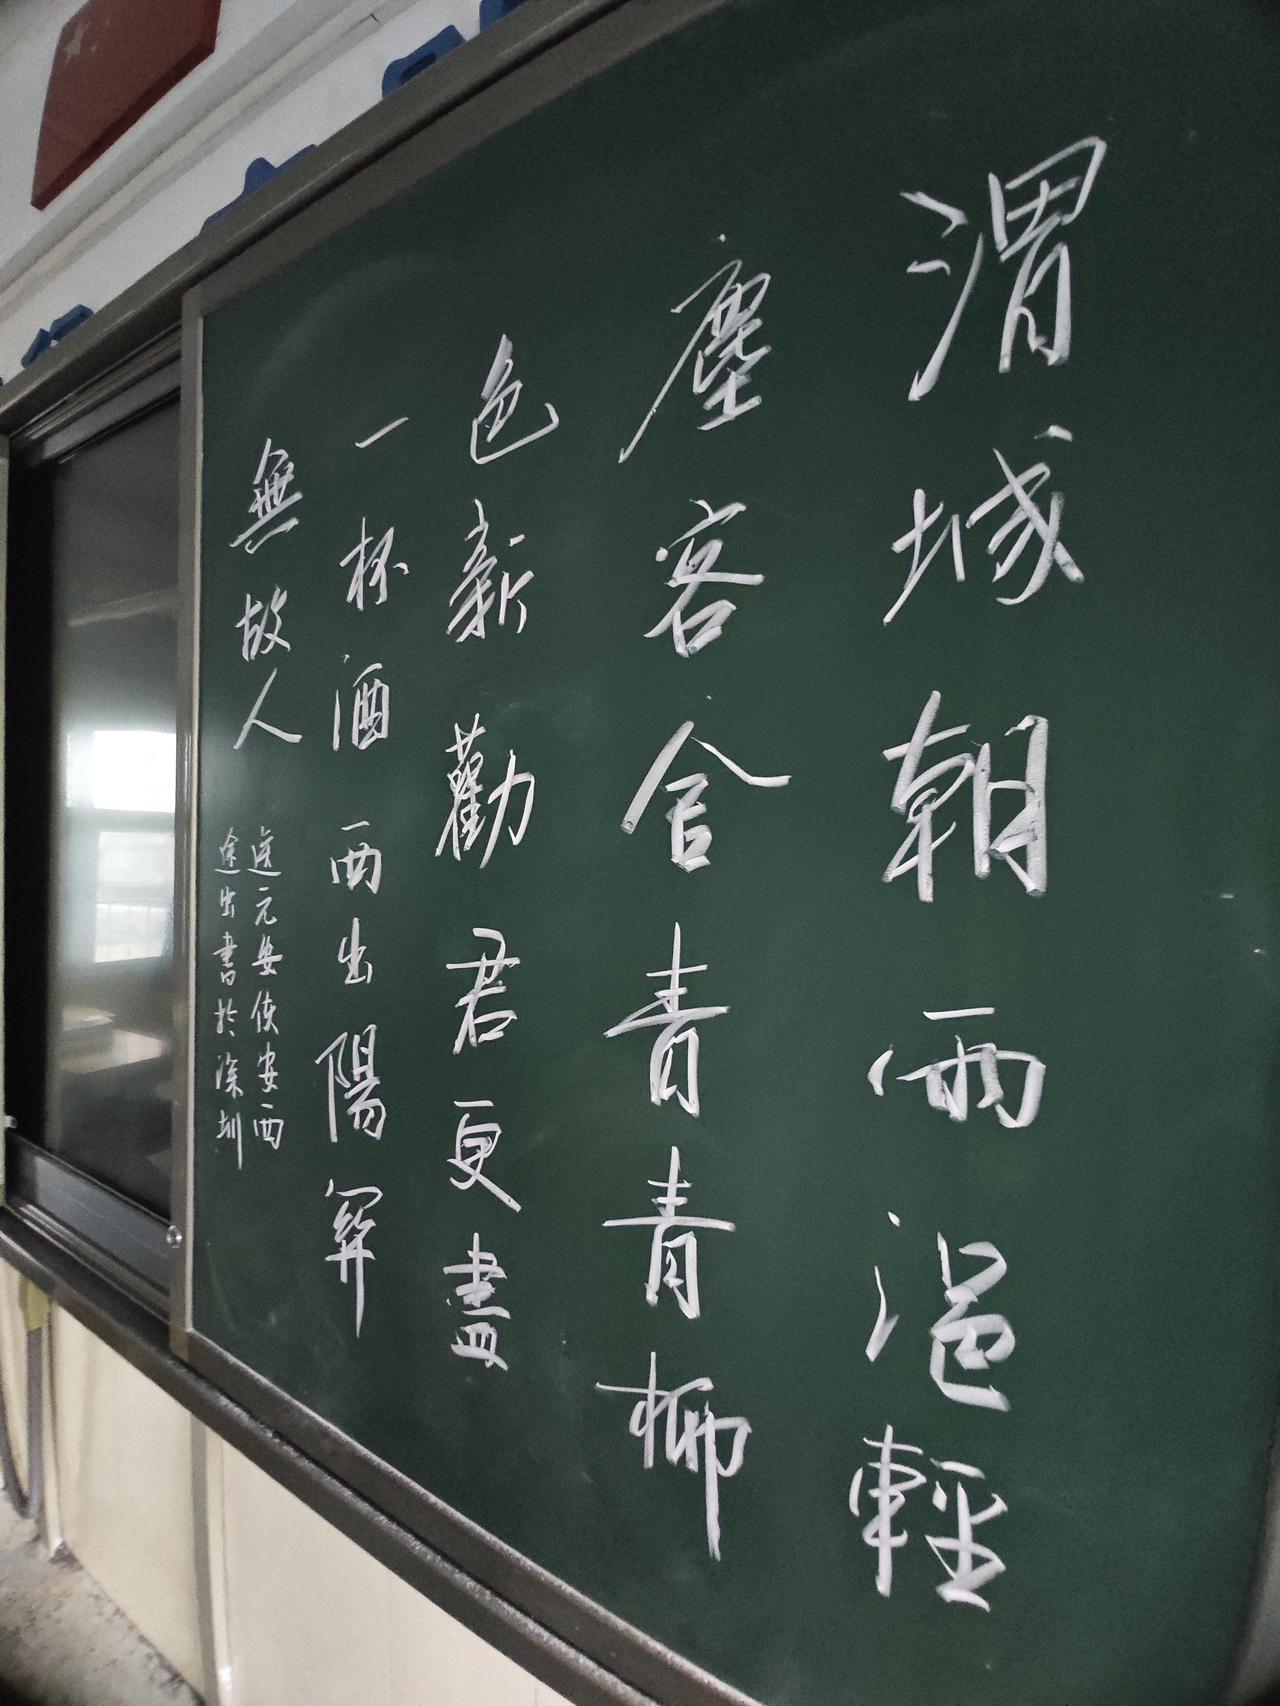 渭城朝雨浥輕
塵客舍青青柳
色新勸君更盡
一杯酒西出陽関
無故人
送元安使安西
途出書於深圳